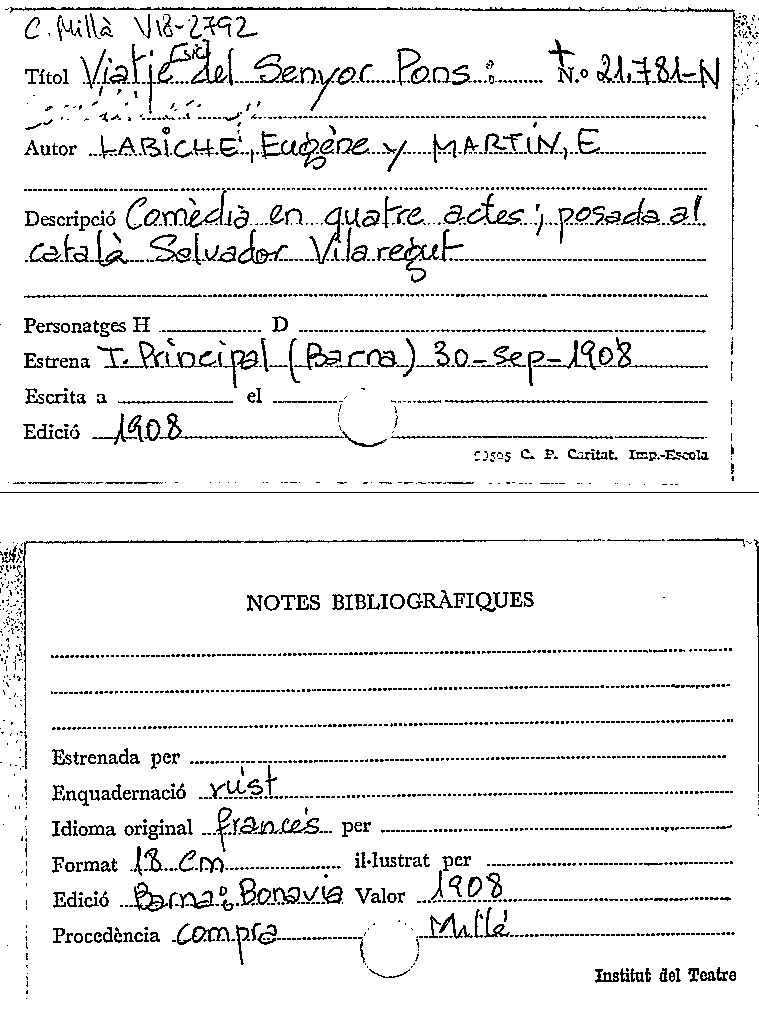 C. Millà V18-2792
Títol Viatje [sic] del Senyor Pons: N.º 21.781-N
Autor LABICHE, Eugène y MARTIN, E
Descripció Comèdia en quatre actes; posada al
català Salvador Vilaregut
Personatges H D
Estrena T. Principal (Barna) 30-sep-1908
Escrita a el
Edició 1908
C. P. Caritat. Imp.-Escola
NOTES BIBLIOGRÀFIQUES
Estrenada per
Enquadernació rúst
Idioma original francés per
Format 18 cm il·lustrat per
Edició Barna: Bonavia Valor 1908
Procedència compra Millá
Institut del Teatre